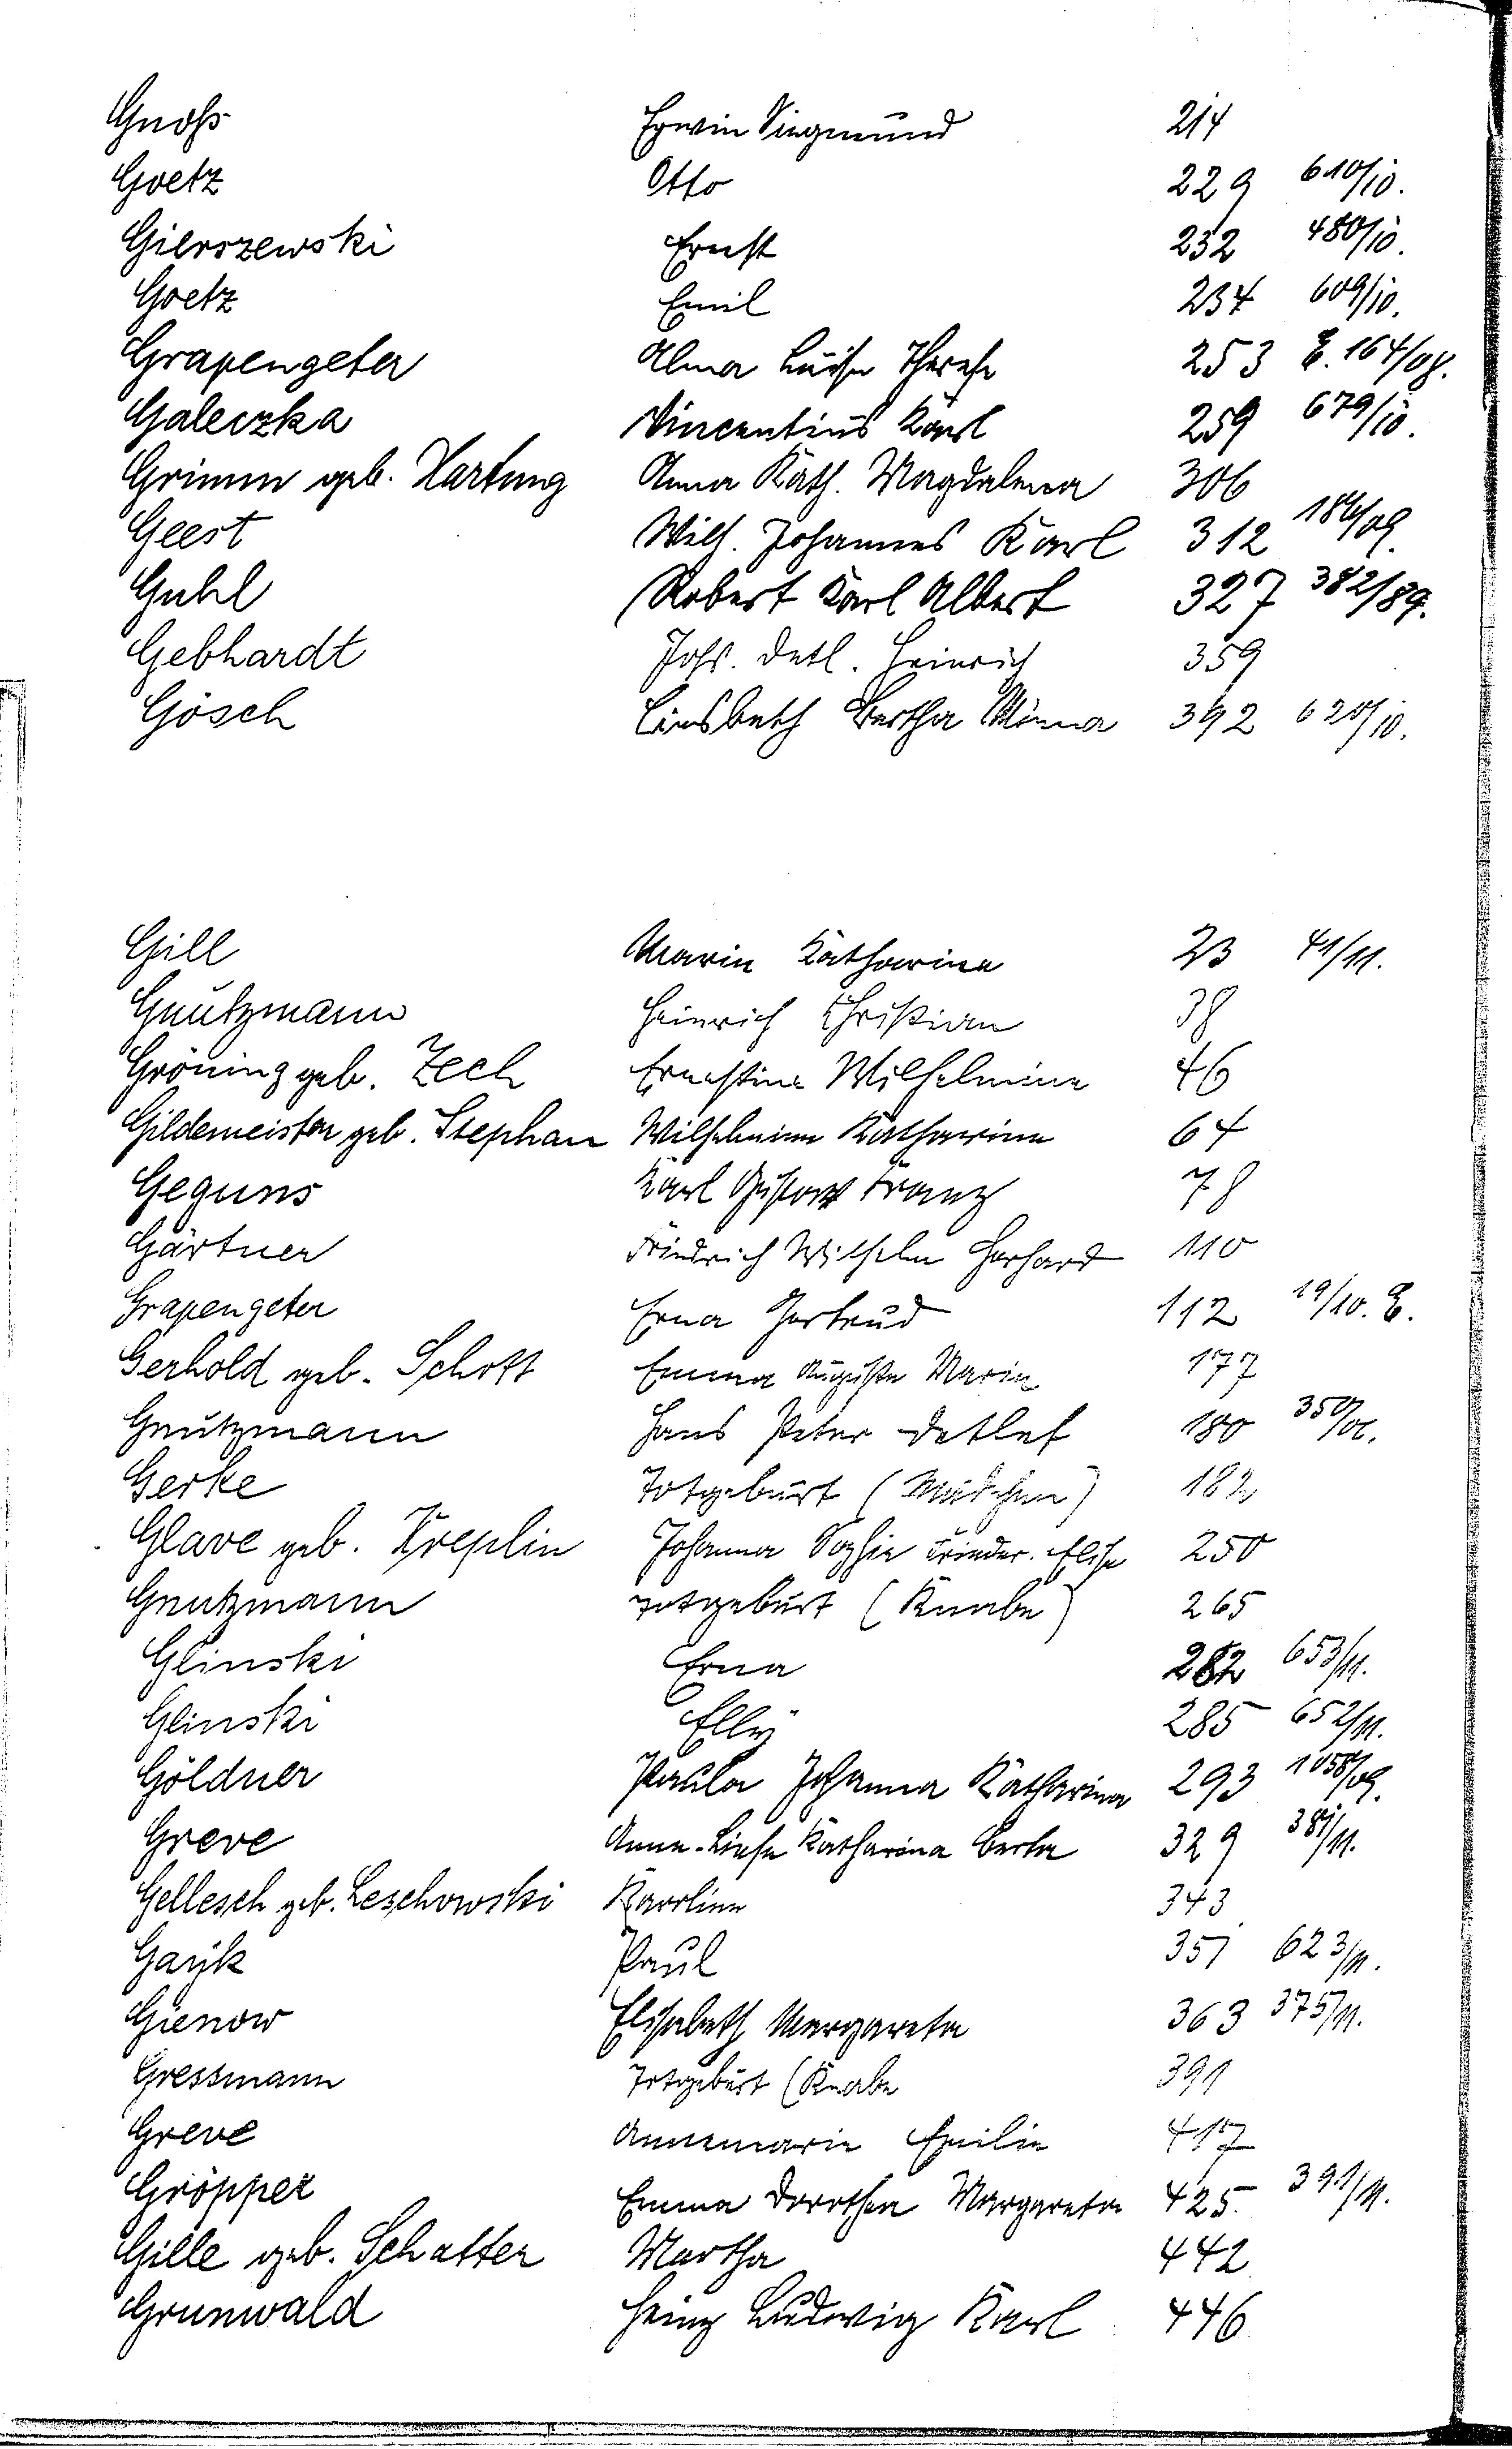 Gnoß Erwin Siegmund 214
Goetz Otto 229 610/10.
Gierszewski Ernst 232 480/10.
Goetz Emil 234 609/10.
Grapengeter Alma Luise Therese 253 E. 164/08.
Galeczka Vincentius Karl 259 679/10.
Grimm geb. Hartung Anna Kath. Magdalena 306
Geest Wilh. Johannes Karl 312 184/09.
Guhl Robert Karl Albert 327 382/89.
Gebhardt Johs. Detl. Heinrich 359
Gösch Liesbeth Bertha Minna 392 620/10.
Gill Marie Katharine 23 41/11.
Gnutzmann Heinrich Christian 38
Gröning geb. Zech Ernestine Wilhelmine 46
Gildemeister geb. Stephan Wilhelmine Katharine 64
Geguns Karl Gustav Franz 78
Gärtner Friedrich Wilhelm Gerhard 110
Grapengeter Erna Gertrud 112 19/10. E.
Gerhold geb. Schott Emma Auguste Marie 177
Gnutzmann Hans Peter Detlef 180 350/01.
Gerke Totgeburt (Mädchen) 182
Glave geb. Kreplin Johanna Sophie Frieder. Elise 250
Gnutzmann Totgeburt (Knabe) 265
Glinski Erna 282 653/11.
Glinski Elly 285 652/11.
Göldner Paula Johanna Katharina 293 1058/09.
Greve Anne-Liese Katharina Berta 329 381/11.
Gellesch geb. Leschowski Karoline 343
Garjk Paul 351 623/11.
Gienow Elisabeth Margareta 363 375/11.
Gressmann Totgeburt (Knabe 391
Greve Annemarie Emilie 417
Gröpper Emma Dorothea Margareta 425. 391/11.
Gille geb. Schatter Martha 442
Grunwald Heinz Ludwig Karl 446